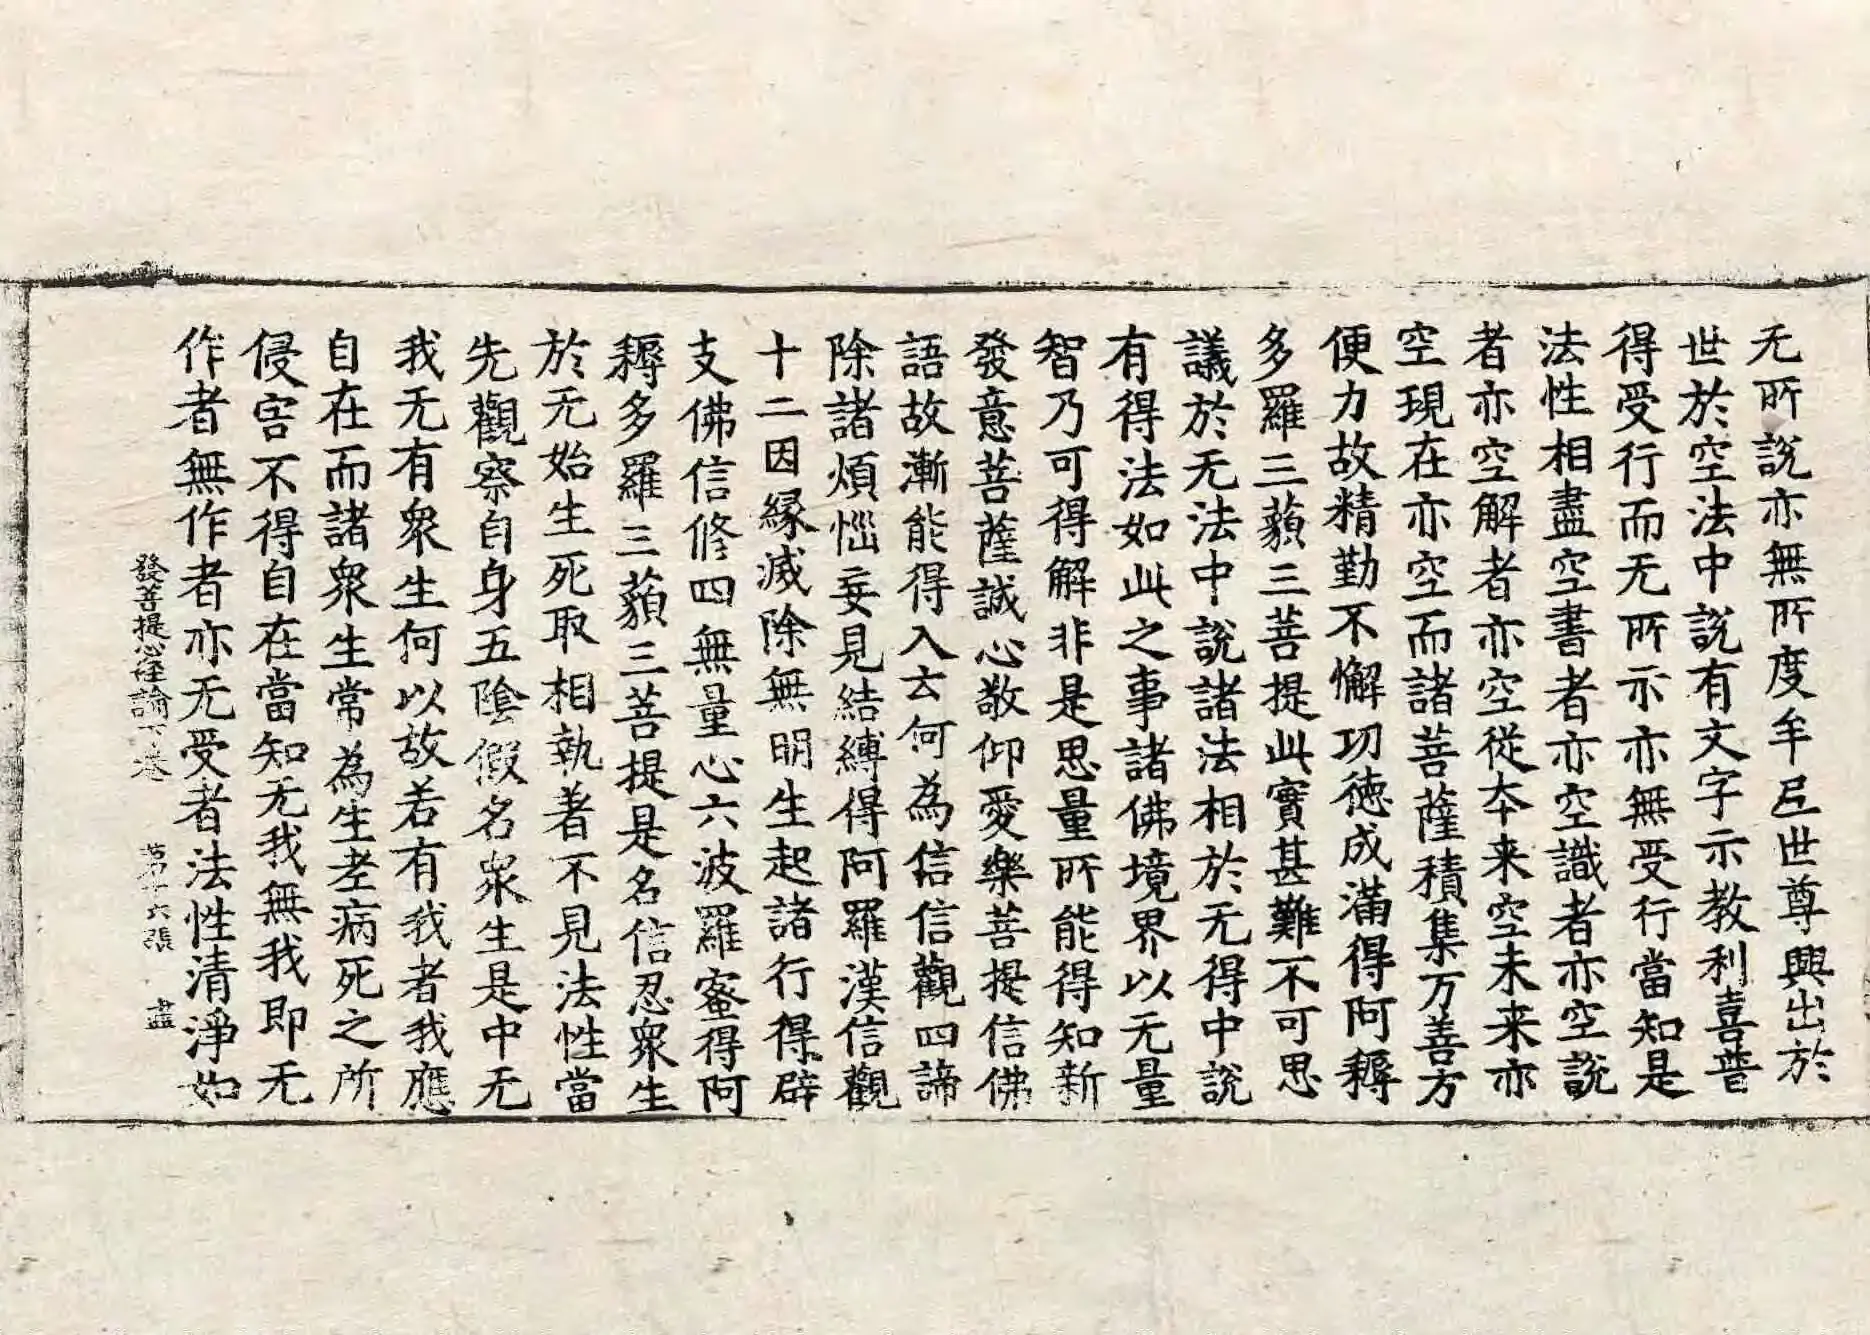 无所說亦無所度牟尼世尊興出於
世於空法中說有文字示教利喜普
得受行而无所示亦無受行當知是
法性相盡空書者亦空識者亦空說
者亦空解者亦空從夲来空未来亦
空現在亦空而諸菩薩積集万善方
便力故精勤不懈功徳成滿得阿耨
多羅三藐三菩提此實甚難不可思
議於无法中說諸法相於无得中說
有得法如此之事諸佛境界以无量
智乃可得解非是思量所能得知新
發意菩薩誠心敬仰愛樂菩提信佛
語故漸能得入云何為信信觀四諦
除諸煩惱妄見結縛得阿羅漢信觀
十二因緣滅除無明生起諸行得辟
支佛信修四無量心六波羅蜜得阿
耨多羅三藐三菩提是名信忍衆生
於无始生死取相執著不見法性當
先觀察自身五陰假名衆生是中无
我无有衆生何以故若有我者我應
自在而諸衆生常為生老病死之所
侵害不得自在當知无我無我即无
作者無作者亦无受者法性清淨如
發菩提心経論下卷 苐十六張 盡